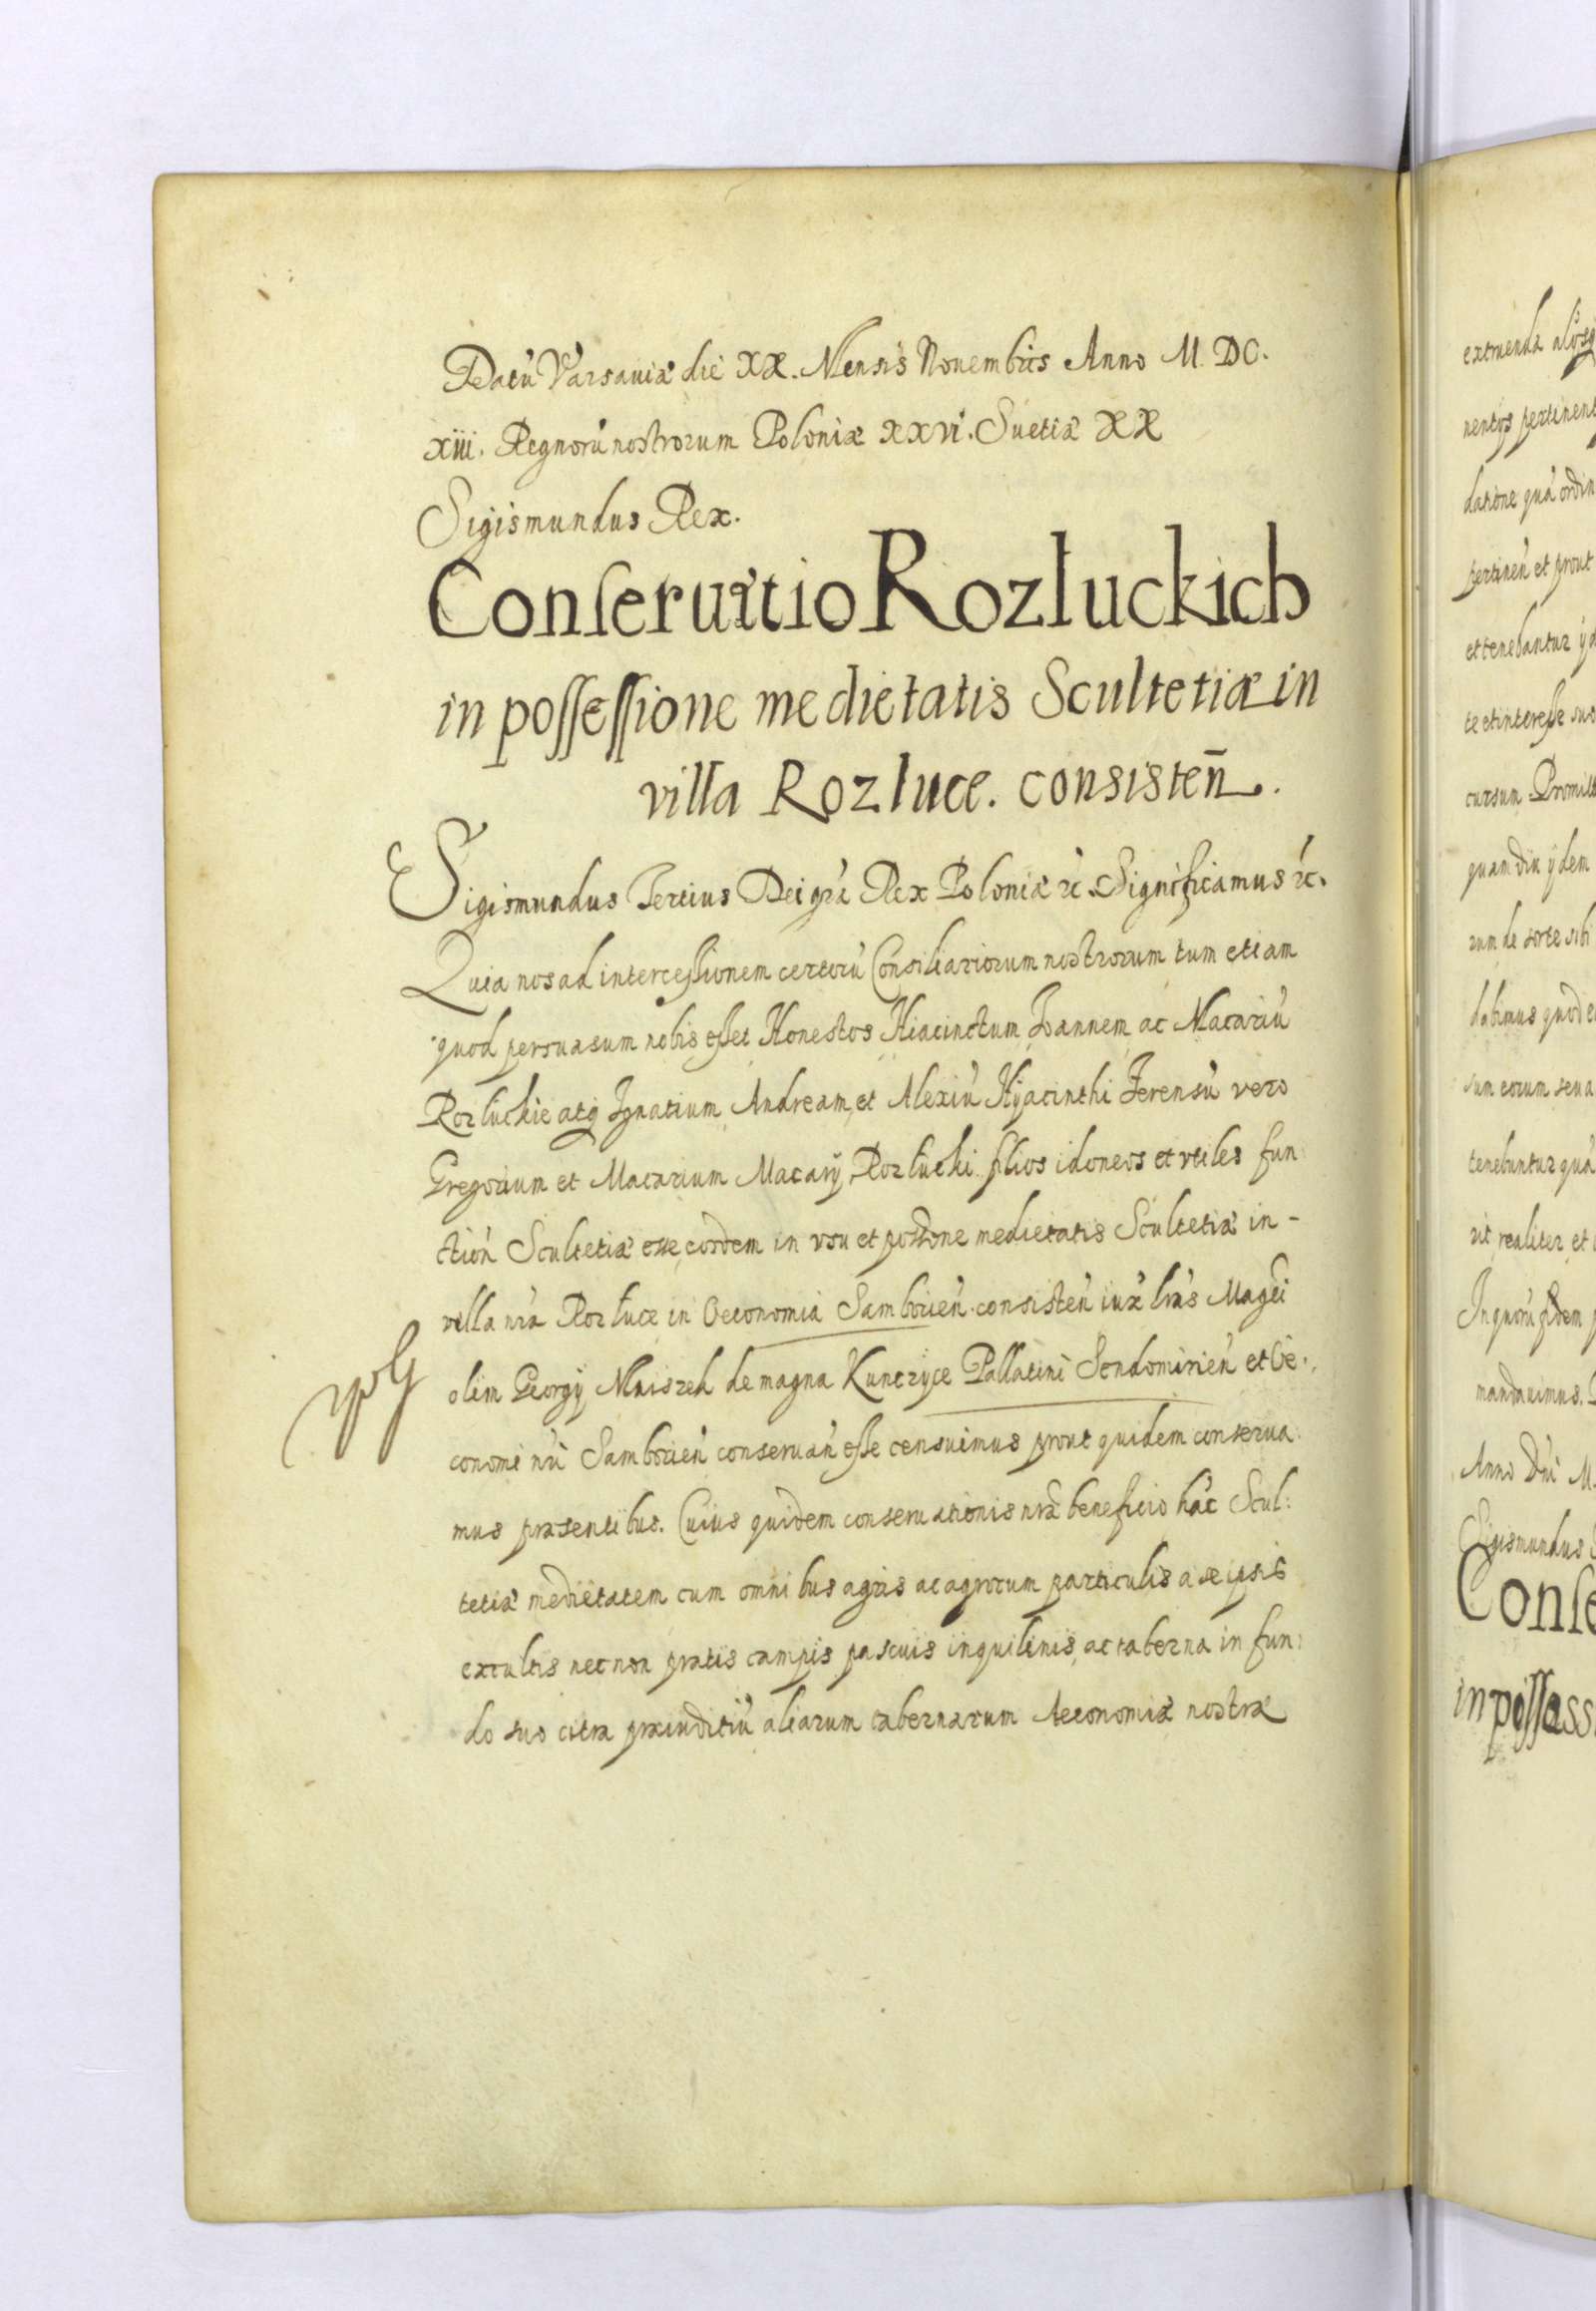 Datũ Varsaviæ die XX. Mensis Novembris Anno M. DC.
xiii. Regnorũ nostrorum Poloniæ XXVI. Suetiæ XX
Sigismundus Rex.
Conseruatio Rozluckich
in possessione medietatis Scultetiæ in
villa Rozluce. consisteñ.
Sigismundus Tertius Dei grã Rex Poloniæ &c Significamus &c.
Quia nos ad intercessionem certorũ Consiliariorum nostrorum tum etiam
quod persuasum nobis esset Honestos Hiacinctum Joannem ac Macariũ
Rozluckie atq Ignatium Andream et Alexiũ Hyacinthi Ferensũ vero
Gregorium et Macarium Macarij Rozlucki filios idoneos et vtiles fun
ctioñ Scultetiæ esse eosdem in vsu et possone medietatis Scultetiæ in-
villa nrã Rozluce in Oeconomia Samborieñ consisteñ iux lrãs Magci
olim Georgij Mniszek de magna Kunczyce Pallatini Sendomirieñ et Oe.
conomi nri Samborieñ conseruañ esse censuimus prout quidem conserua:
mus præsentibus. Cuius quidem conseruationis nrã beneficio hãc Scul:
tetiæ medietatem cum omnibus agris ac agrorum particulis a se ipsis
excultis necnon pratis campis pascuis inquilinis ac taberna in fun:
do suo citra præiuditiũ aliarum tabernarum Aeconomiæ nostræ
extruenda
pertinent
datione quã ordin
pertineñ et prout
et tenebantur
te et interesse suo
cursum
quamdiu ijdem
rum de sorte sibi
dabimus quod
sum eorum seu a
tenebuntur quã
rit realiter et
In quorũ fidem
mandauimus.
Anno Dni M.
Sigismundus
Conse
in possess